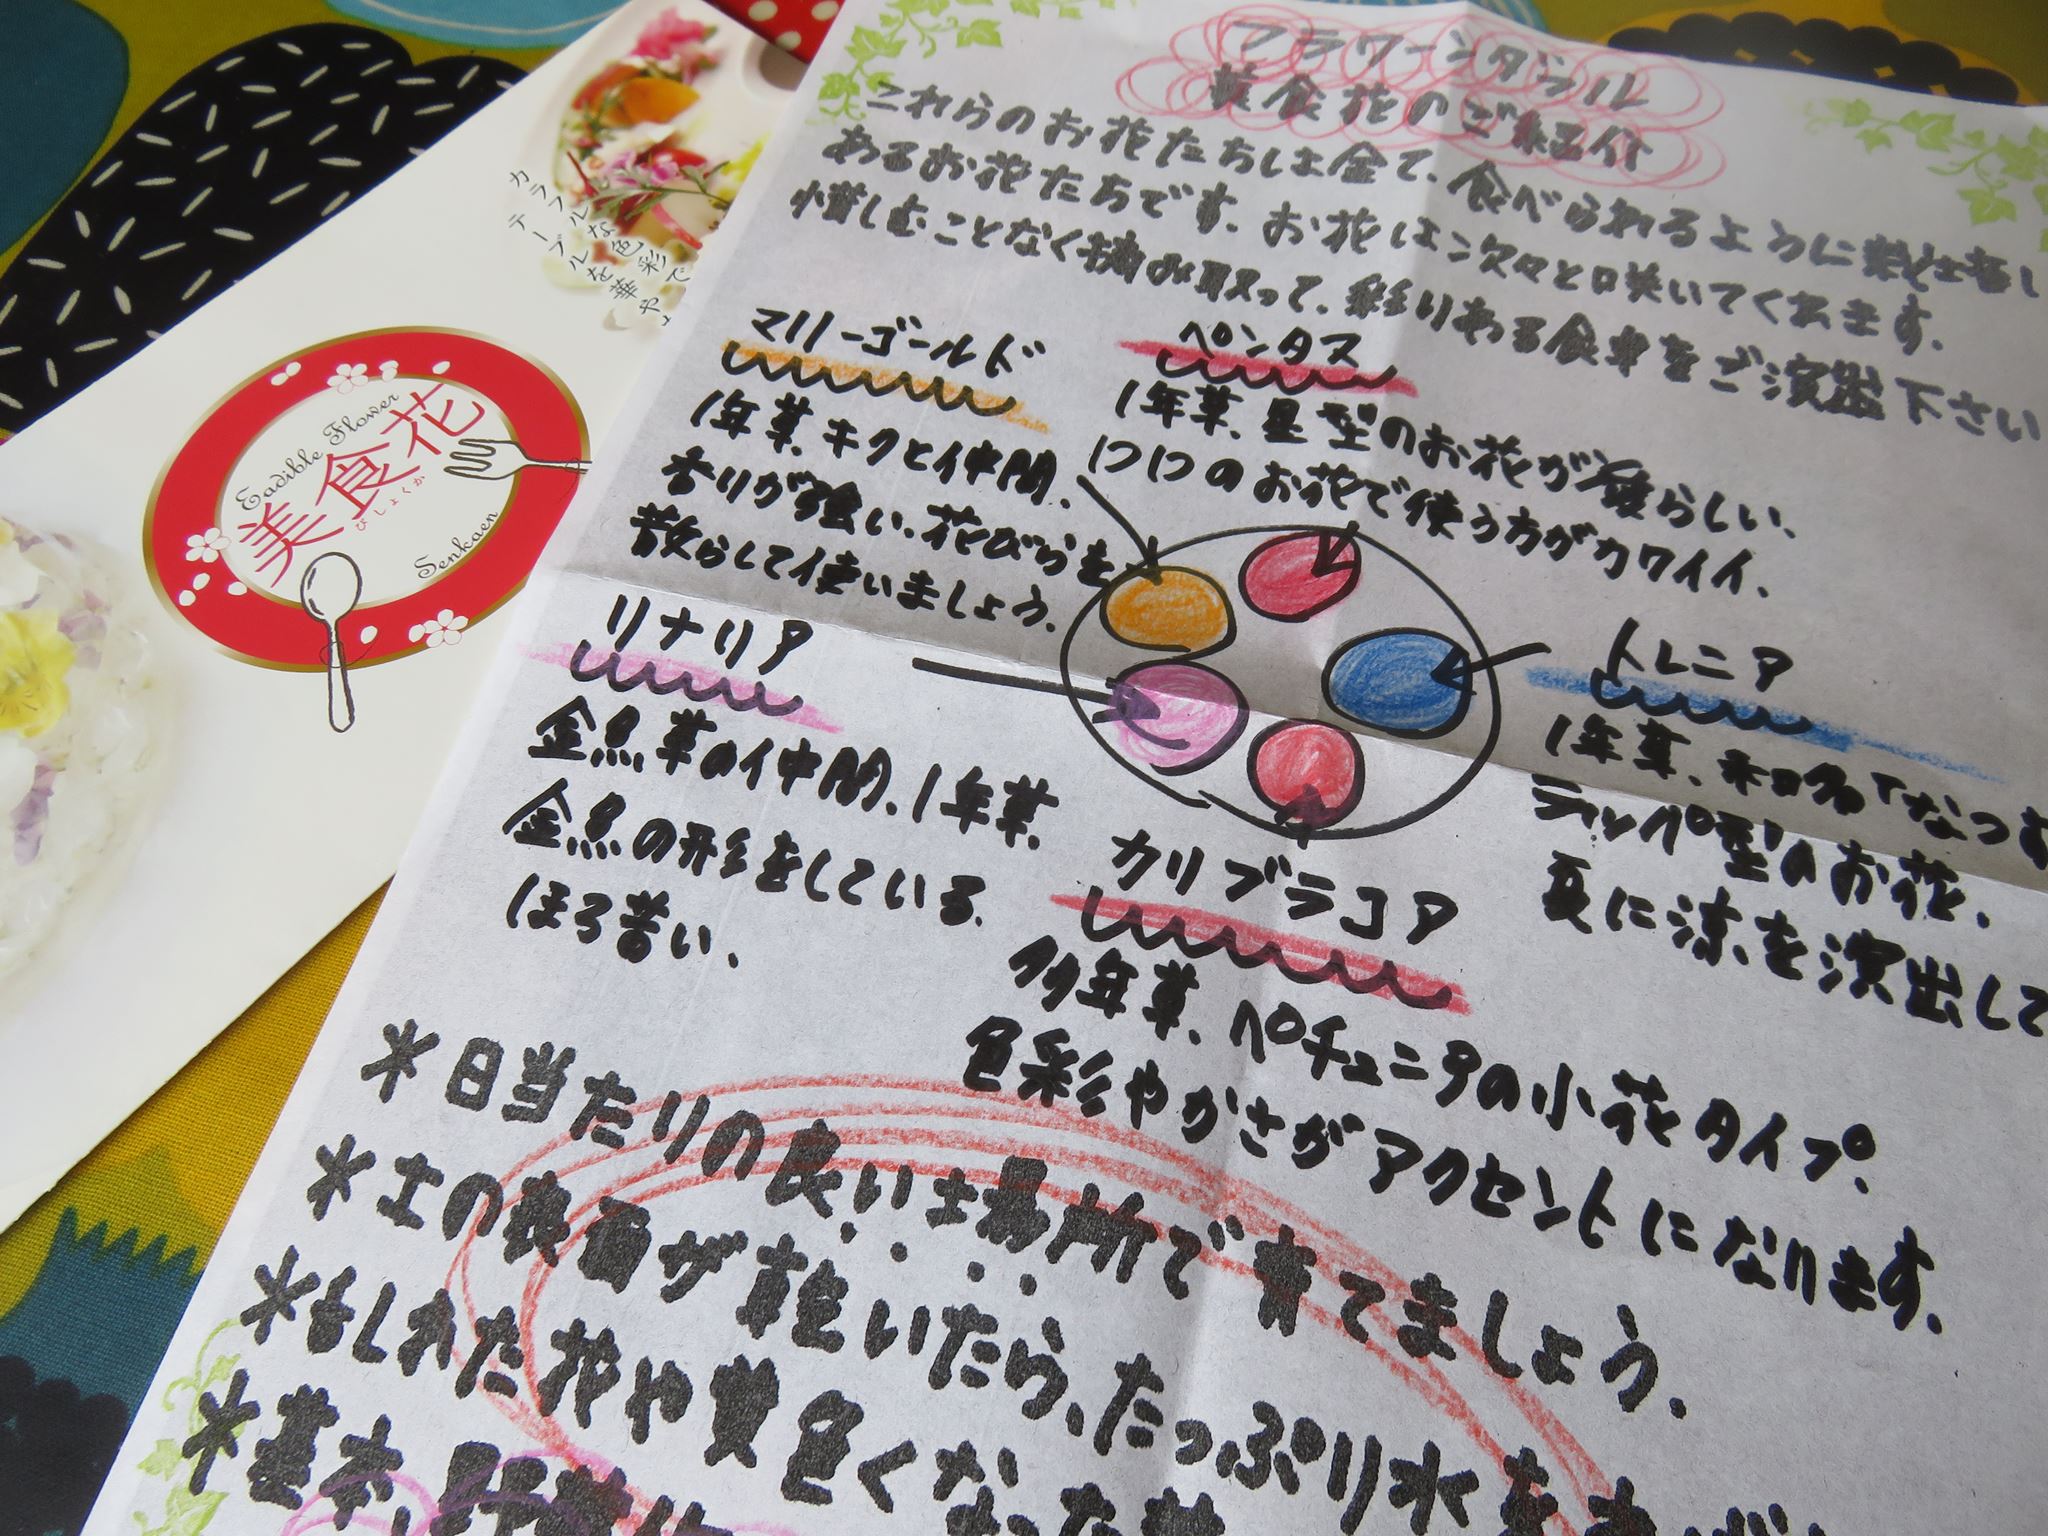 カラフルな色彩で
テーブルを華や
Eadible Flower
美食花
びしょくか
Senkaen
美食花のご紹介
これらのお花たちは全て、食べられるように栽培し
あるお花たちです。お花は次々と咲いてくれます。
惜しむことなく摘み取って、彩りある食卓をご演出下さい
マリーゴールド
1年草、キクと仲間、
香りが強い、花びらを
散らして使いましょう。
ペンタス
1年草、星型のお花が愛らしい、
1つ1つのお花で使う方がカワイイ、
リナリア
金魚草の仲間、1年草、
金魚の形をしている、
ほろ苦い、
トレニア
1年草、和名でなつす
ラッパ型のお花、
夏に涼を演出して
カリブラコア
多年草、ペチュニアの小花タイプ、
色彩やかさがアクセントになります。
*日当たりの良い場所で育てましょう。
*土の表面が乾いたら、たっぷり水を
*よしれた花や黄色くなった葉
*基本、野菜